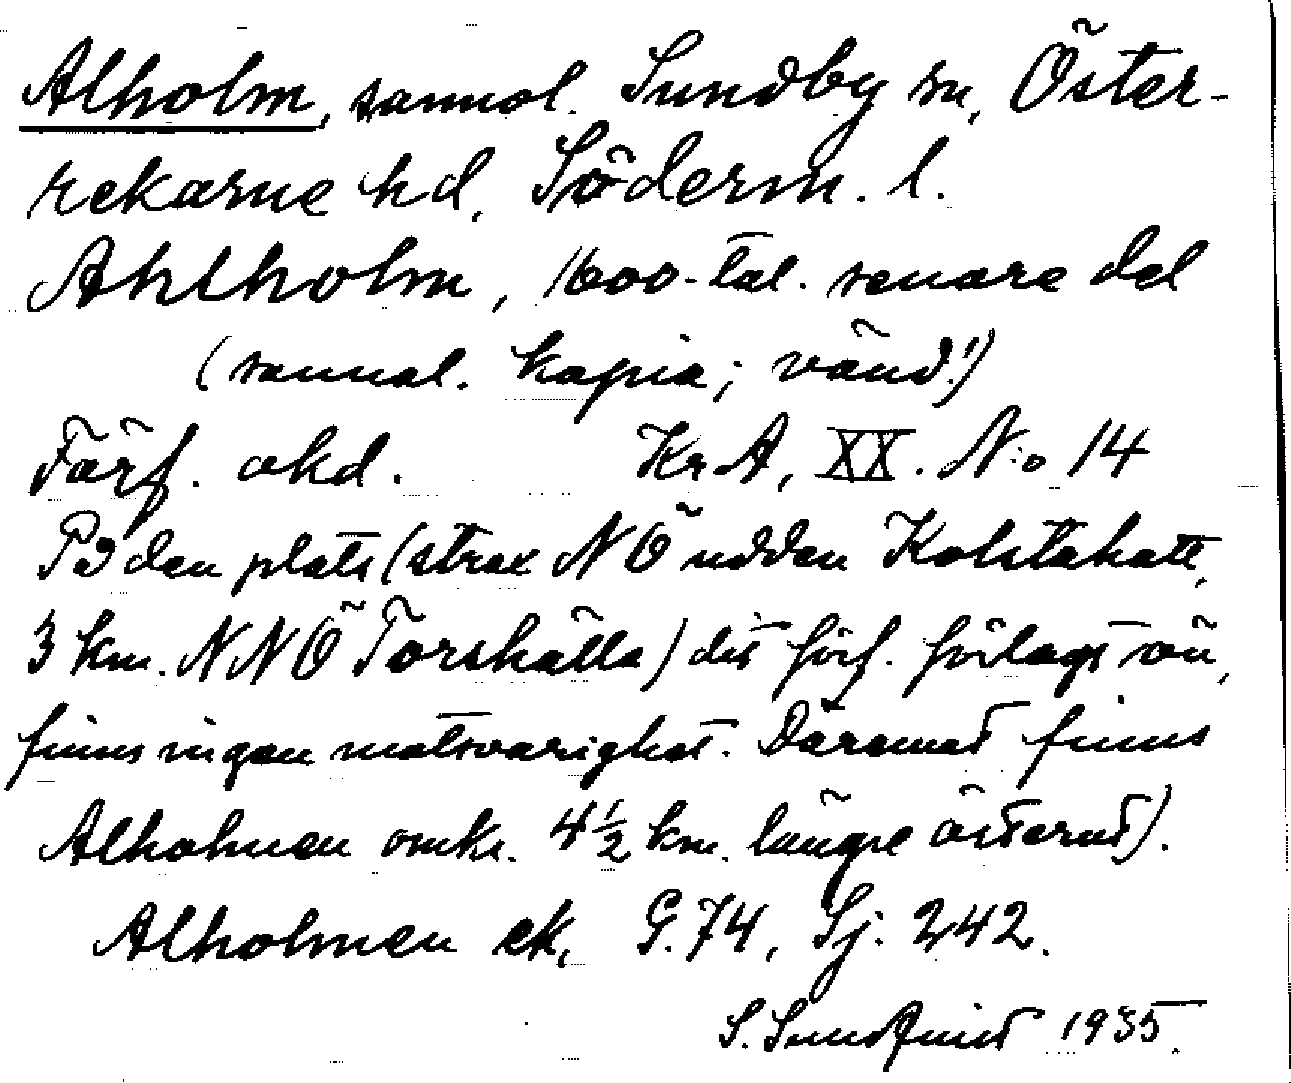 Alholm, sannol. Sundby sn, Öster-
rekarne hd, Söderm. l.
Ahlholm, 1600-tal. senare del
(sannol. kopia; vänd!)
Förf. okd. Kr. A, XX. N:o 14
På den plats (strax NÖ udden Kolstahatt,
3 km. NNÖ Torshälla) dit förf. förlagt ön,
finns ingen motsvarighet. Däremot finns
Alholmen omkr. 4 1/2 km. längre österut).
Alholmen ek, G. 74, Sj. 242.
S. Sundquist 1935.